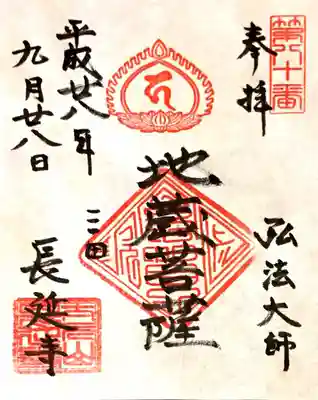 第八十番
奉拝
弘法大師
地蔵菩薩
三田
長延寺
平成廿八年
九月廿八日